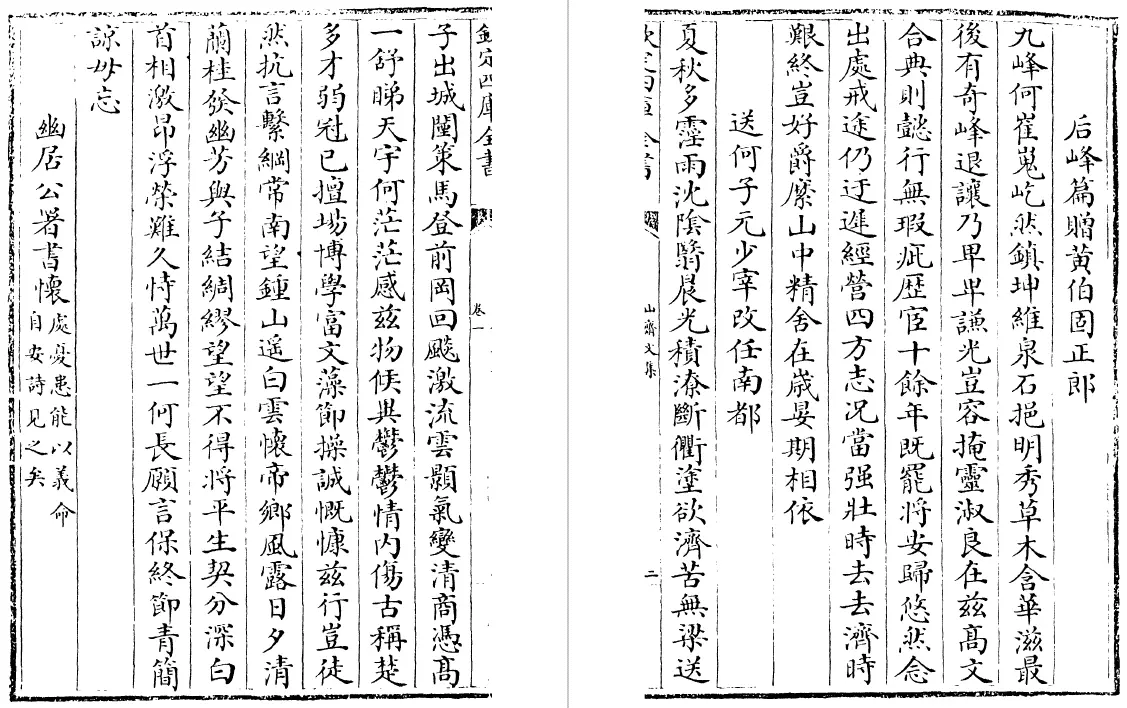 后峰篇贈黄伯固正郎
九峰何崔嵬屹然鎮坤維泉石挹明秀草木含華滋最
後有奇峰退讓乃卑卑謙光豈容掩靈淑良在兹髙文
合典則懿行無瑕疵歴宦十餘年既罷將安歸悠然念
出處戒途仍迂遲經營四方志况當强壯時去去濟時
艱終豈好爵縻山中精舍在嵗晏期相依
送何子元少宰改任南都
夏秋多霪雨沈陰翳晨光積潦斷衢塗欲濟苦無梁送
欽定四庫全書
山齋文集
二
欽定四庫全書
卷一
子出城闉策馬登前岡回飈激流雲顥氣變清商憑髙
一舒睇天宇何茫茫感兹物候異鬱鬱情内傷古稱楚
多才弱冠已擅塲博學富文藻節操誠慨慷兹行豈徒
然抗言繫綱常南望鍾山遥白雲懷帝鄉風露日夕清
蘭桂發幽芳與子結綢繆望望不得將平生契分深白
首相激昻浮榮難久恃萬世一何長願言保終節青簡
諒毋忘
幽居公署書懷
處憂患能以義命
自安詩見之矣